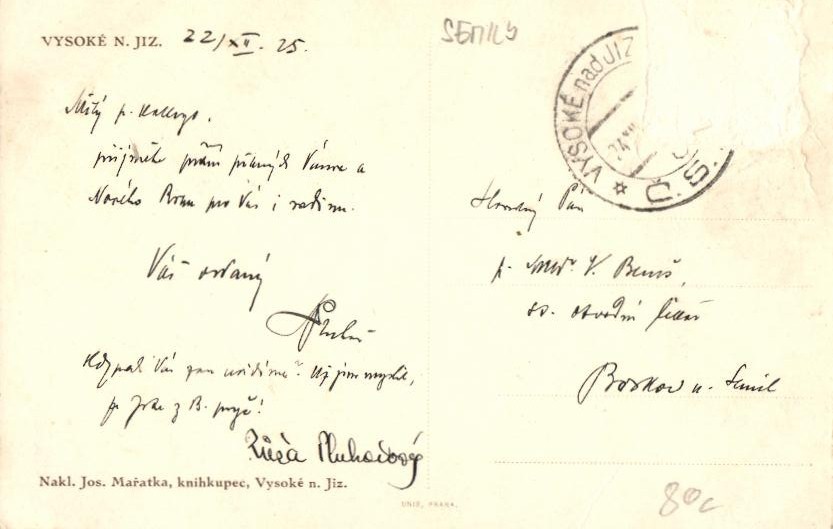 VYSOKÉ N. JIZ. 22/XII. 25.
Milý p. kollego,
přijměte přání pěkných Vánoc a
Nového Roku pro Vás i rodinu.
Váš oddaný
Kdypak Vás zas uvidíme? Už jsme myslili,
že jste z B. pryč!
Růža Pluhařová
Nakl. Jos. Mařatka, knihkupec, Vysoké n. Jiz.
UNIE, PRAHA.
SEMILY
VYSOKÉ nad JIZ
ČSP
Slovutný Pán
p. MUDr V. Beneš,
obvodní lékař
Bozkov u Semil
80c